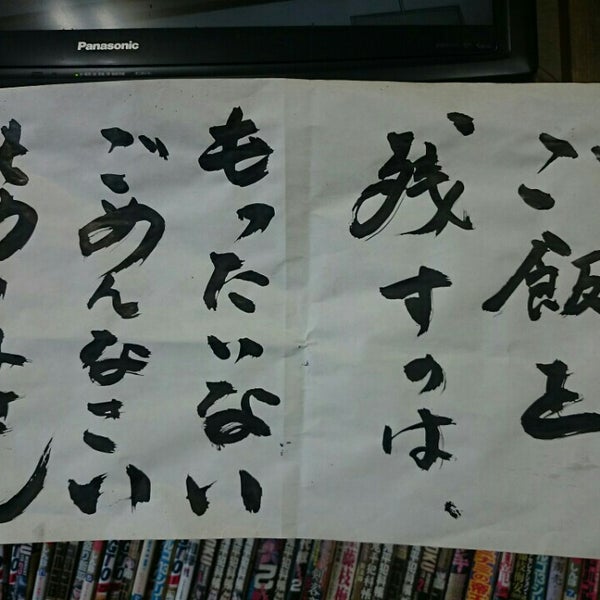 Panasonic
ご飯を
残すのは、
もったいない
ごめんなさい